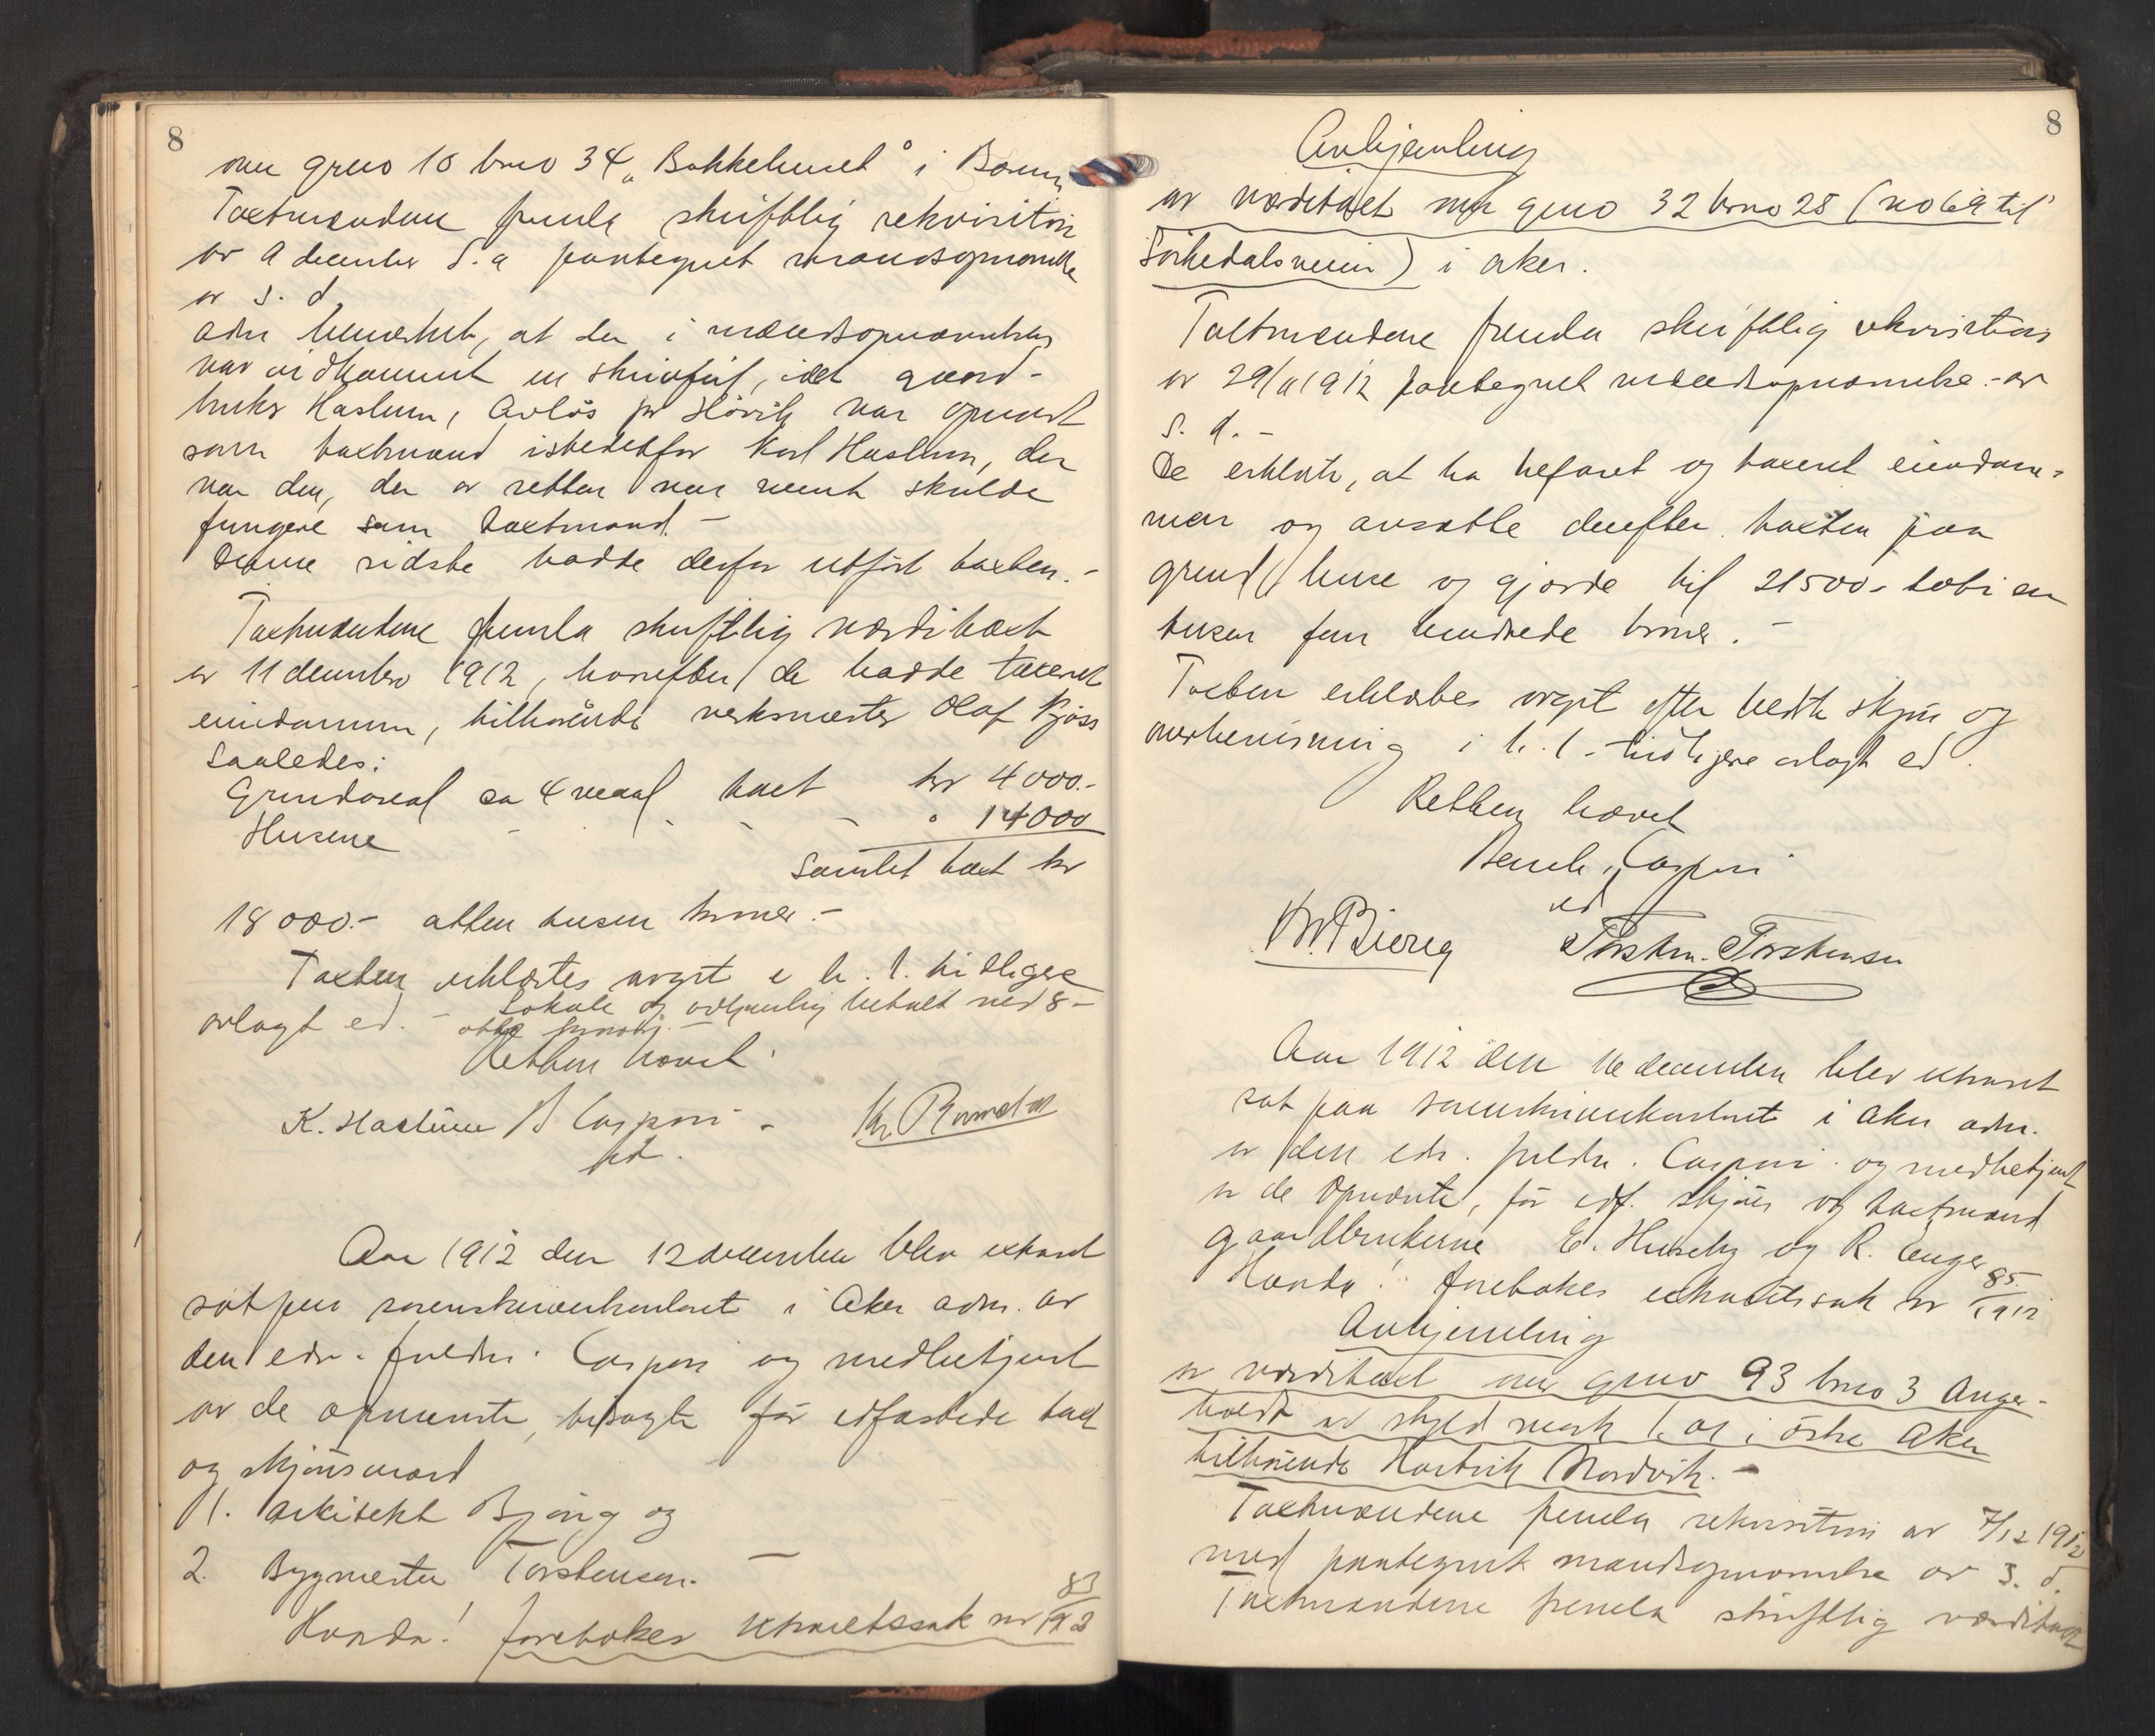 8
over gno 10 bno 34 „Bakkehuset" i Bærum
Taxtmændene fremla skriftlig rekvisition
av 9 december d. a. paategnet mandsopnævnelse
av s. d.
Adm bemerket, at der i mændsopnævnelsen
var indkommet en skrivfeil, idet gaard-
bruker Haslum, Avløs pr Høvik var opnævnt
som taxtmand istedetfor Karl Haslum, der
var den, der av retten var ment skulde
fungere som taxtmand. -
Denne sidste hadde derfor utført taxten. -
Taxtmændene fremla skriftlig værditaxt
av 11 december 1912, hvorefter de hadde taxeret
eiendommen, tilhørende verksmester Olaf Kjøss
saaledes:
Grundareal ca 4 maal taxt kr 4000.-
Husene - - - - " 14000
Samlet taxt kr
18000.- atten tusen kroner. -
Taxten erklærtes avgit i h. t. tidligere
avlagt ed. - Lokale og avhjemling betalt med 8 -
otte kroner. -
Retten hævet.
K. Haslum B Caspari - Kr. Ramstad
ed.
Aar 1912 den 12 december blev extraret
sat paa sorenskriverkontoret i Aker adm. av
den edsv. fuldm. Caspari og medbetjent
av de opnævnte, tilsagte før edfæstede taxt
og skjønsmænd
1. Arkitekt Bjerig og
2. Bygmester Torstensen. -
Hvorda! foretokes extraretssak nr 83/1912
8
Avhjemling
av værditaxt over gno 32 bno 28 (no 69 til
Sørkedalsveien) i Aker.
Taxtmændene fremla skriftlig rekvisition
av 29/11 1912 paategnet mændsopnævnelse. - av
s. d. -
De erklærte, at ha befaret og taxeret eiendom-
men og ansatte derefter taxten paa
grund, huse og gjærde til 21500 - toti en
tusen fem hundrede kroner. -
Taxten erklærtes avgit efter bedste skjøn og
overbevisning i h. t. tidligere avlagt ed.
Retten hævet
Bernh. Caspari
ed
Torsten Torstensen
Aar 1912 den 16 december blev extraret
sat paa sorenskriverkontoret i Aker adm.
av den edsv. fuldm. Caspari og medbetjent
av de opnævnte, før edf. skjøns og taxtmænd
gaardbrukerne E. Huseby og R. Enger
Hvorda! foretokes extraretssak nr 85/1912
Avhjemling
av værditaxt over gno 93 bno 3 Anger-
holdt av skyld mark 1.01 i østre Aker
tilhørende Nordvik. -
Taxtmændene fremla rekvisition av 7/12 1912
med paategnet mandsopnævnelse av s. d.
Taxtmændene fremla skriftlig værditaxt